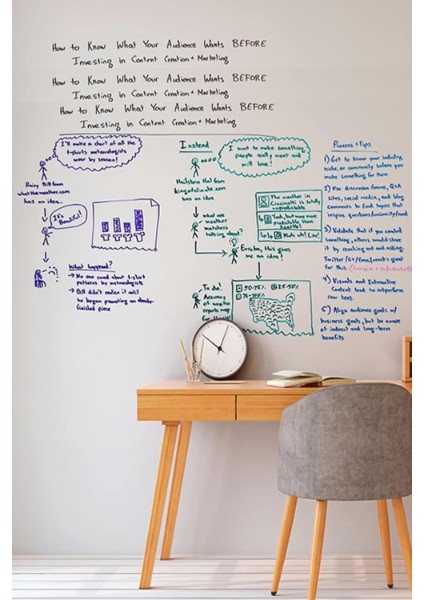 How to Know What Your Audience Wants BEFORE
Investing in Content Creation + Marketing
How to Know What Your Audience Wants BEFORE
Investing in Content Creation + Marketing
How to Know What Your Audience Wants BEFORE
Investing in Content Creation + Marketing
I'll make a chart of all the
t-shirts meteorologists
wear by season!
Rainy Bill from
whattheweather.com
has an idea...
It's
Beautiful!
What happened?
→ No one cared about t-shirt
patterns by meteorologists
→ Bill didn't realize it until
he began promoting
finished piece
Instead
I want to make something
people really want and
will love!
Hailstone Hal from
has an idea
what are
weather
watchers
talking about?
The weather in
Cincinnati is totally
unpredictable
Yeah, but more
predictable than
Seattle!
Nuh uh! Lin!
Eureka, this gives
me an idea!
To do:
Accuracy
of weather
reports across
Process + Tips
1) Get to know your industry,
niche, or community before you
make something for them
2) Use discussion forums, Q&A
sites, social media, and blog
comments to find topics that
inspire questions/curiosity/need
3) Validate that if you create
something, others would share
it by reaching out and asking.
Twitter/G+/Email works great
for this.
4) Visuals and Interactive
Content tend to outperform
raw text.
5) Align audience goals w/
business goals, but be aware
of indirect and long-term
benefits